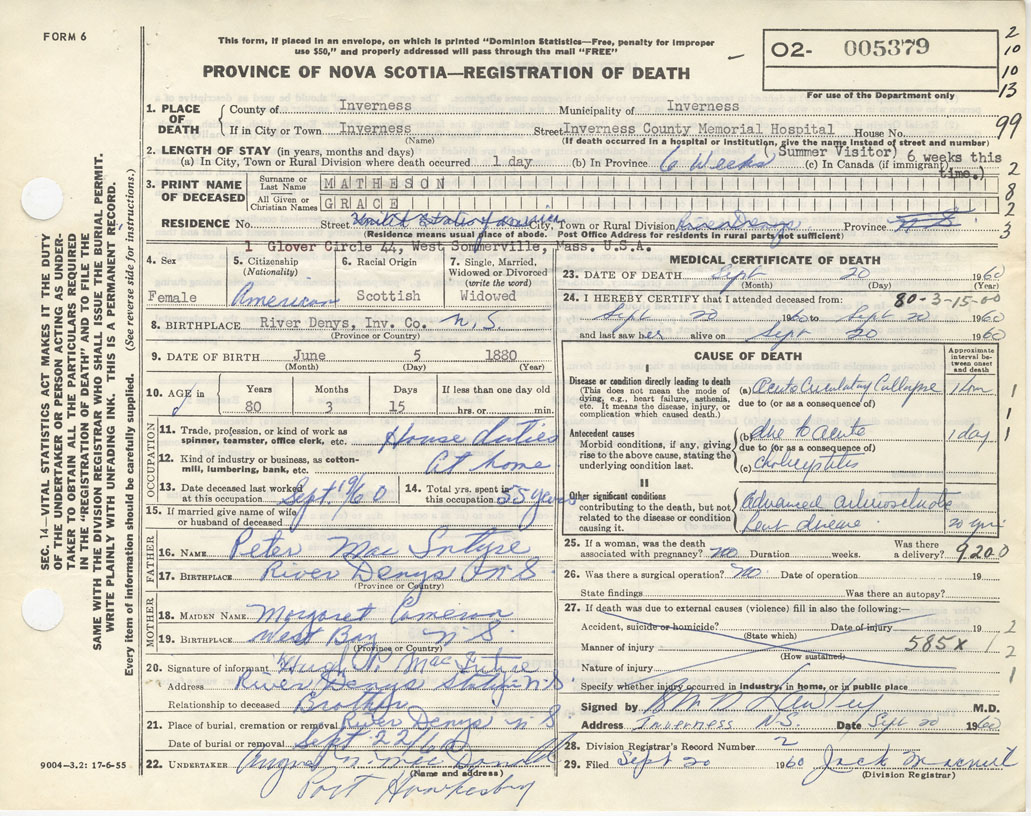 FORM 6
This form, if placed in an envelope, on which is printed "Dominion Statistics—Free, penalty for improper
use $50," and properly addressed will pass through the mail "FREE"
O2- 005379
For use of the Department only
2
10
10
13
99
PROVINCE OF NOVA SCOTIA—REGISTRATION OF DEATH
1. PLACE OF DEATH County of Inverness Municipality of Inverness
If in City or Town Inverness (Name) Street Inverness County Memorial Hospital House No.
(If death occurred in a hospital or institution, give the name instead of street and number)
2. LENGTH OF STAY (in years, months and days) (Summer Visitor) 6 weeks this time.)
(a) In City, Town or Rural Division where death occurred 1 day (b) In Province 6 Weeks (c) In Canada (if immigrant)
3. PRINT NAME OF DECEASED Surname or Last Name MATHESON
All Given or Christian Names GRACE
2
8
2
3
RESIDENCE No. Street United States of America City, Town or Rural Division River Denys Province N.S.
(Residence means usual place of abode. Post Office Address for residents in rural parts not sufficient)
1 Glover Circle 44, West Sommerville, Mass. U.S.A.
4. Sex Female
5. Citizenship (Nationality) American
6. Racial Origin Scottish
7. Single, Married, Widowed or Divorced (write the word) Widowed
8. BIRTHPLACE River Denys, Inv. Co. N.S.
(Province or Country)
9. DATE OF BIRTH June 5 1880
(Month) (Day) (Year)
10. AGE in Years 80 Months 3 Days 15 If less than one day old hrs. or min.
OCCUPATION
11. Trade, profession, or kind of work as spinner, teamster, office clerk, etc. House duties
12. Kind of industry or business, as cotton-mill, lumbering, bank, etc. At home
13. Date deceased last worked at this occupation Sept 1960 14. Total yrs. spent in this occupation 55 years
15. If married give name of wife or husband of deceased
FATHER
16. NAME Peter Mac Intyre
17. BIRTHPLACE River Denys N.S.
(Province or Country)
MOTHER
18. MAIDEN NAME Margaret Cameron
19. BIRTHPLACE West Bay N.S.
(Province or Country)
20. Signature of informant Hugh P. Mac Intyre
Address River Denys Station N.S.
Relationship to deceased Brother
21. Place of burial, cremation or removal River Denys N.S.
Date of burial or removal Sept 22/60
22. UNDERTAKER Angus MacDonald
(Name and address)
Port Hawkesbury
MEDICAL CERTIFICATE OF DEATH
23. DATE OF DEATH Sept 20 1960
(Month) (Day)
24. I HEREBY CERTIFY that I attended deceased from: 80-3-15-00
Sept 20 1960 to Sept 20 1960
and last saw her alive on Sept 20 1960
CAUSE OF DEATH
Approximate interval between onset and death
I
Disease or condition directly leading to death
(This does not mean the mode of dying, e.g., heart failure, asthenia, etc. It means the disease, injury, or complication which caused death.)
(a) Acute Circulatory Collapse
due to (or as a consequence of)
1
Antecedent causes
Morbid conditions, if any, giving rise to the above cause, stating the underlying condition last.
(b) due to acute 1 day
due to (or as a consequence of)
(c) cholecystitis
1
1
II
Other significant conditions
contributing to the death, but not related to the disease or condition causing it.
Advanced
heart disease 20 yrs
25. If a woman, was the death associated with pregnancy? no Duration weeks. Was there a delivery? 9200
26. Was there a surgical operation? no Date of operation 19
State findings Was there an autopsy?
27. If death was due to external causes (violence) fill in also the following:—
Accident, suicide or homicide? Date of injury 19
(State which)
Manner of injury 585x
(How sustained)
Nature of injury
Specify whether injury occurred in industry, in home, or in public place
2
1
2
1
Signed by M.D.
Address Inverness N.S. Date Sept 20 1960
28. Division Registrar's Record Number 2
29. Filed Sept 20 1960 Jack Macneil
(Division Registrar)
SEC. 14—VITAL STATISTICS ACT MAKES IT THE DUTY
OF THE UNDERTAKER OR PERSON ACTING AS UNDER-
TAKER TO OBTAIN ALL THE PARTICULARS REQUIRED
IN THE "REGISTRATION OF DEATH" AND TO FILE THE
SAME WITH THE DIVISION REGISTRAR WHO SHALL ISSUE THE BURIAL PERMIT.
WRITE PLAINLY WITH UNFADING INK. THIS IS A PERMANENT RECORD.
Every item of information should be carefully supplied. (See reverse side for instructions.)
9004—3.2: 17-6-55